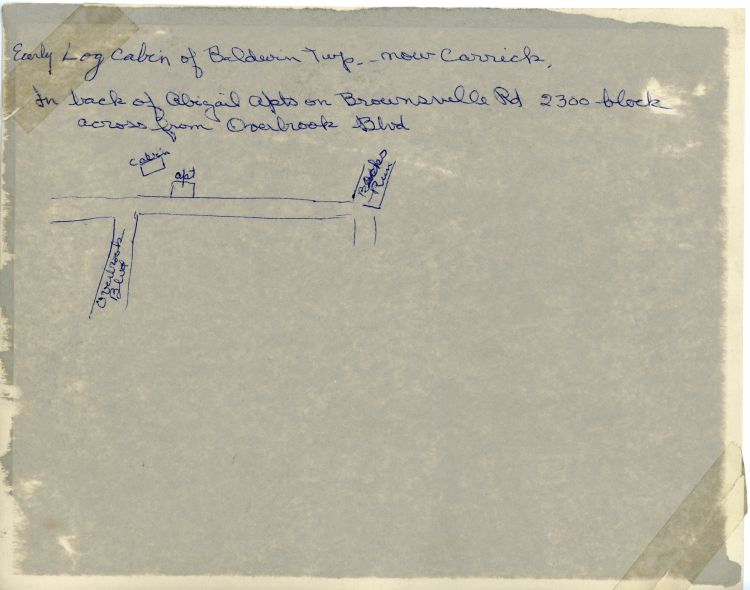 Early Log Cabin of Baldwin Twp. - now Carrick.
In back of Abigail Apts on Brownsville Rd 2300 block
across from Overbrook Blvd
Cabin
apt
Becks
Run
Overbrook
Blvd